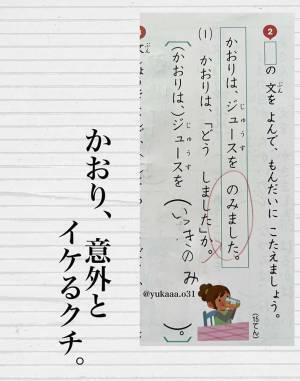 ❷ の 文を よんで、もんだいに こたえましょう。
ぶん
かおりは、ジュースを のみました。
じゅうす
(1) かおりは、「どう しました」か。
(かおりは、)ジュースを (いっきのみ)。
じゅうす
(15てん)
@yukaaa.o31
かおり、意外と
イケるクチ。